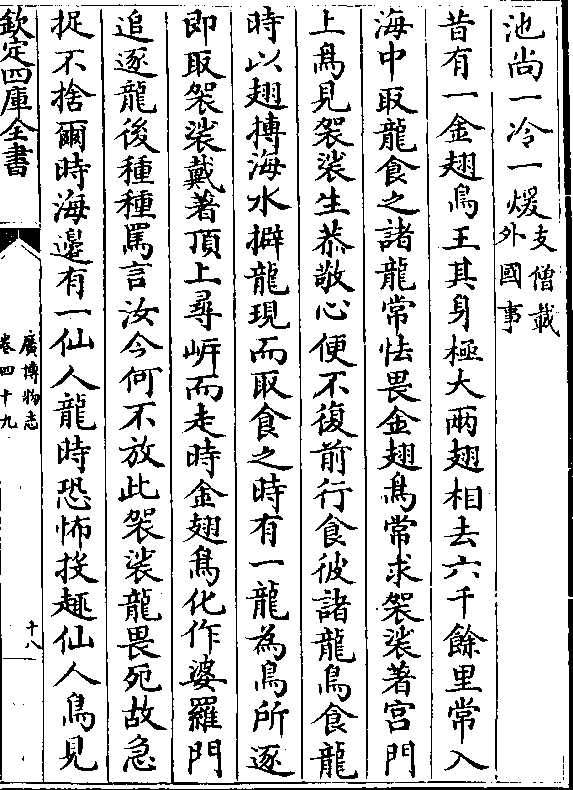 池尚一冷一煖支僧載外國事
昔有一金翅鳥王其身極大兩翅相去六千餘里常入
海中取龍食之諸龍常怯畏金翅鳥常求袈裟著宮門
上鳥見袈裟生恭敬心便不復前行食彼諸龍鳥食龍
時以翅搏海水擗龍現而取食之時有一龍為鳥所逐
即取袈裟戴著頂上尋㟁而走時金翅鳥化作婆羅門
追逐龍後種種罵言汝今何不放此袈裟龍畏死故急
捉不捨爾時海邊有一仙人龍時恐怖投趣仙人鳥見
欽定四庫全書
廣博物志
卷四十九
十八